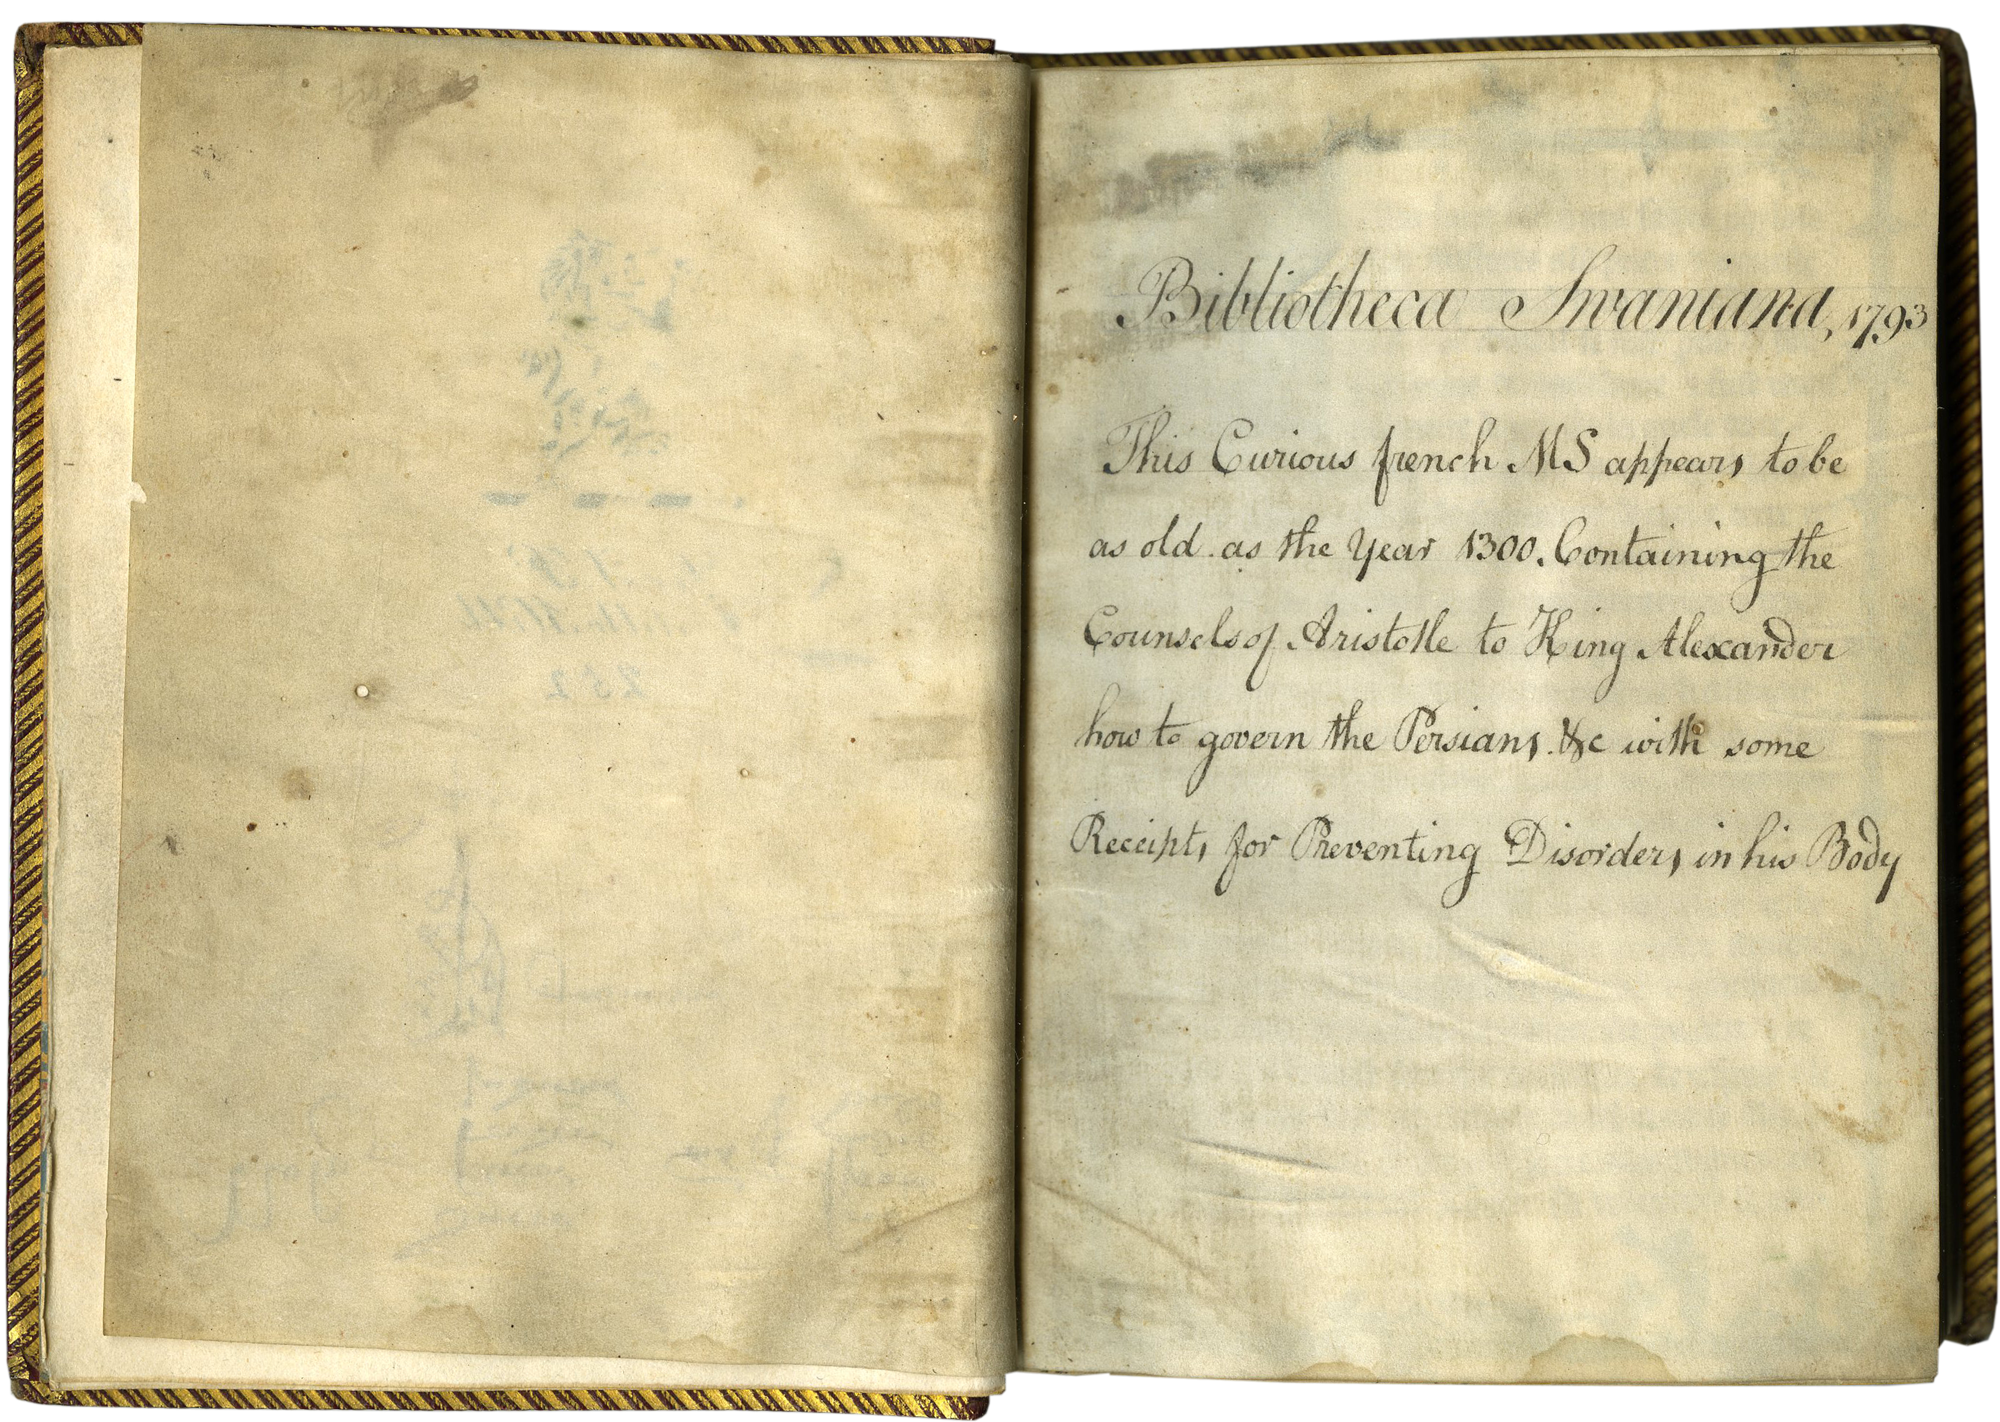 Bibliotheca Swaniana, 1793
This Curious french MS appears to be
as old as the Year 1300. Containing the
Counsels of Aristotle to King Alexander
how to govern the Persians &c with some
Receipts for Preventing Disorders in his Body